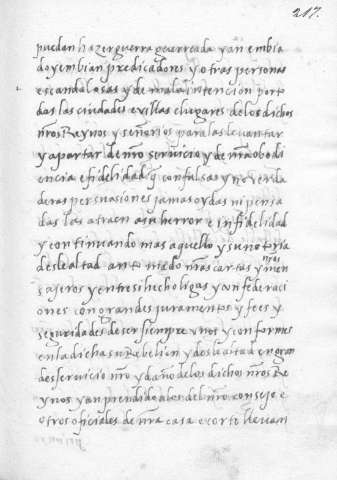 217.
puedan hazer guerra guerreada y an embia
do y embian predicadores y otras personas
escandalosas y de mala intención por to
das las ciudades e villas e lugares de los dichos
nros Reynos y señorios para las levantar
y apartar de nro servicio y de nra obedi
encia e fidelidad q con falsas y no verda
deras persuasiones jamas oydas ni pensa
das las atraen a su herror e infidelidad
y continuando mas aquello y su notoria
deslealtad an tomado nras cartas y nros men
sajeros y entre si hecho ligas y confederaci
ones con grandes juramentos y fees y
seguridades de ser siempre unos y conformes
en la dicha su Rebelion y deslealtad en gran
desservicio nro y daño de los dichos nros Re
ynos y an prendido a los del nro consejo e
otros oficiales de nra casa e corte llevan